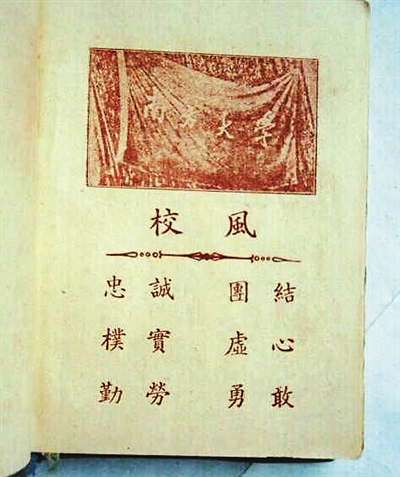 大学
校風
忠誠 團結
樸實 虛心
勤勞 勇敢